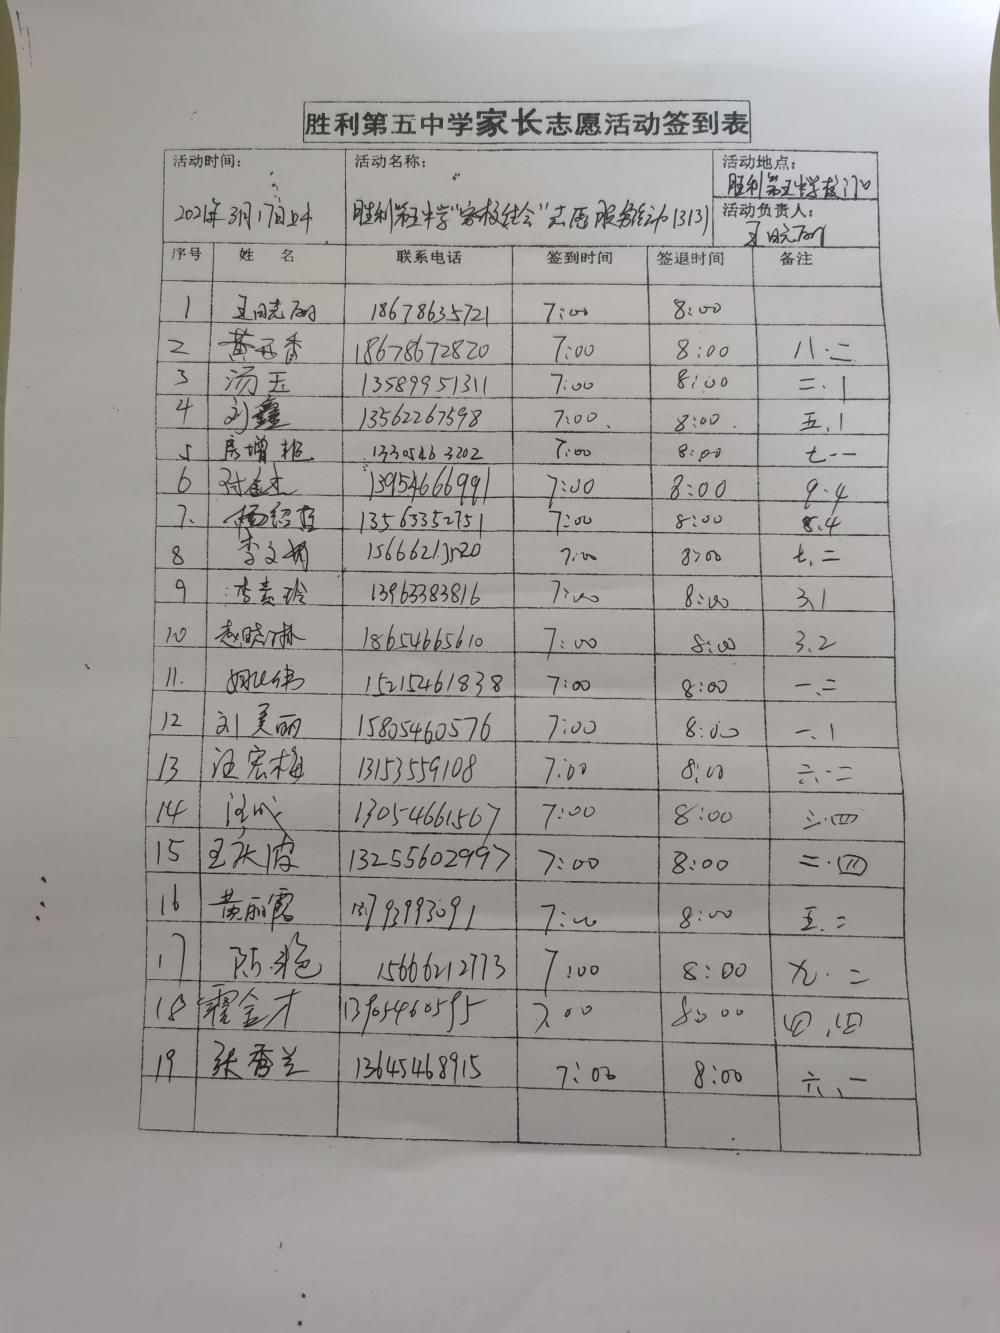 胜利第五中学家长志愿活动签到表
活动时间: 活动名称: 活动地点:
胜利第五中学校门口
2021年3月17日上午 胜利第五中学"家校社会"志愿服务活动(313) 活动负责人:
王晓丽
序号 姓 名 联系电话 签到时间 签退时间 备注
1 王晓丽 18678635721 7:00 8:00
2 黄 香 18678672820 7:00 8:00 八.二
3 汤玉 13589951311 7:00 8:00 二.1
4 刘鑫 13562267598 7:00 8:00 五.1
5 房增 13305463202 7:00 8:00 七一
6 13954666991 7:00 8:00 9.4
7. 杨绍 13563352751 7:00 8:00 8.4
8 李文 15666213520 7:00 8:00 七.二
9 李 玲 13963383816 7:00 8:00 3.1
10 赵晓琳 18654665610 7:00 8:00 3.2
11. 伟 15215461838 7:00 8:00 一.二
12 刘美丽 15805460576 7:00 8:00 一.1
13 汪宏梅 13153559108 7:00 8:00 六.二
14 汪 13054661567 7:00 8:00 三.四
15 王 波 13255602997 7:00 8:00 二.四
16 黄丽霞 13793993091 7:00 8:00 五.二
17 陈 艳 15666212773 7:00 8:00 九.二
18 霍金才 13905460595 7:00 8:00 四.四
19 张香兰 13645468915 7:00 8:00 六、一